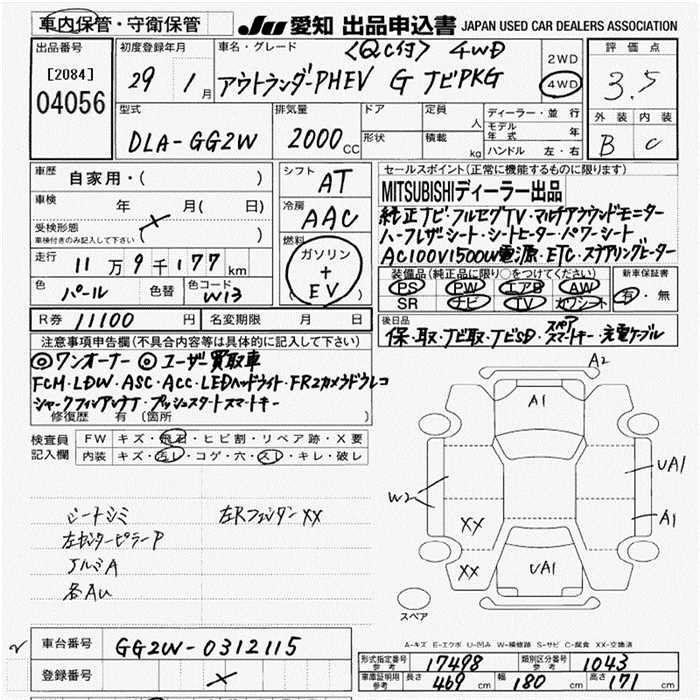 車内保管・守衛保管 JU 愛知 出品申込書 JAPAN USED CAR DEALERS ASSOCIATION
出品番号 初度登録年月 車名・グレード 〈QC付〉 4WD 2WD 評価点
[2084] 29 1月 アウトランダーPHEV G ナビPKG 4WD 3.5
04056
型式 排気量 ドア 定員 人 ディーラー・並行 外装 内装
DLA-GG2W 2000CC 形状 積載 kg モデル年式 年 B C
ハンドル 左・右
車歴 自家用・( ) シフト AT セールスポイント(正常に機能するものに限ります)
車検 年 月( 日) 冷房 AAC MITSUBISHIディーラー出品
受検形態 ×( ) 純正ナビ・フルセグTV・マルチアラウンドモニター
車検付きのみ記入して下さい 燃料 ハーフレザーシート・シートヒーター・パワーシート
走行 11万9千177km ガソリン+EV AC100V1500W電源・ETC・ステアリングヒーター
色 パール 色替 色コード W13 装備品(純正品に限り○をつけてください) 新車保証書
PS PW エアB AW 有・無
SR ナビ TV カワシート
R券 11100円 名変期限 月 日 後日品
保・取・ナビ取・ナビSD・スペアスマートキー・充電ケーブル
注意事項申告欄(不具合内容等は具体的に記入して下さい)
◎ワンオーナー ◎ユーザー買取車
FCM・LDW・ASC・ACC・LEDヘッドライト・FR2カメラドラレコ
シャークフィンアンテナ・プッシュスタートスマートキー
修復歴 有(箇所 )
検査員記入欄 FW キズ・飛石・ヒビ割・リペア跡・X要
内装 キズ・汚レ・コゲ・穴・スレ・キレ・破レ
シートシミ 左Rフェンダー XX
左センターピラーP
アルミA
各AU
A2
A1
UA1
W2
A1
XX
XX
UA1
スペア
A-キズ E-エクボ U-凹み W-補修跡 S-サビ C-腐食 XX-交換済
車台番号 GG2W-0312115
登録番号 ×
形式指定番号参考 17498 類別区分番号参考 1043
車庫証明用参考 長さ 469cm 幅 180cm 高さ 171cm